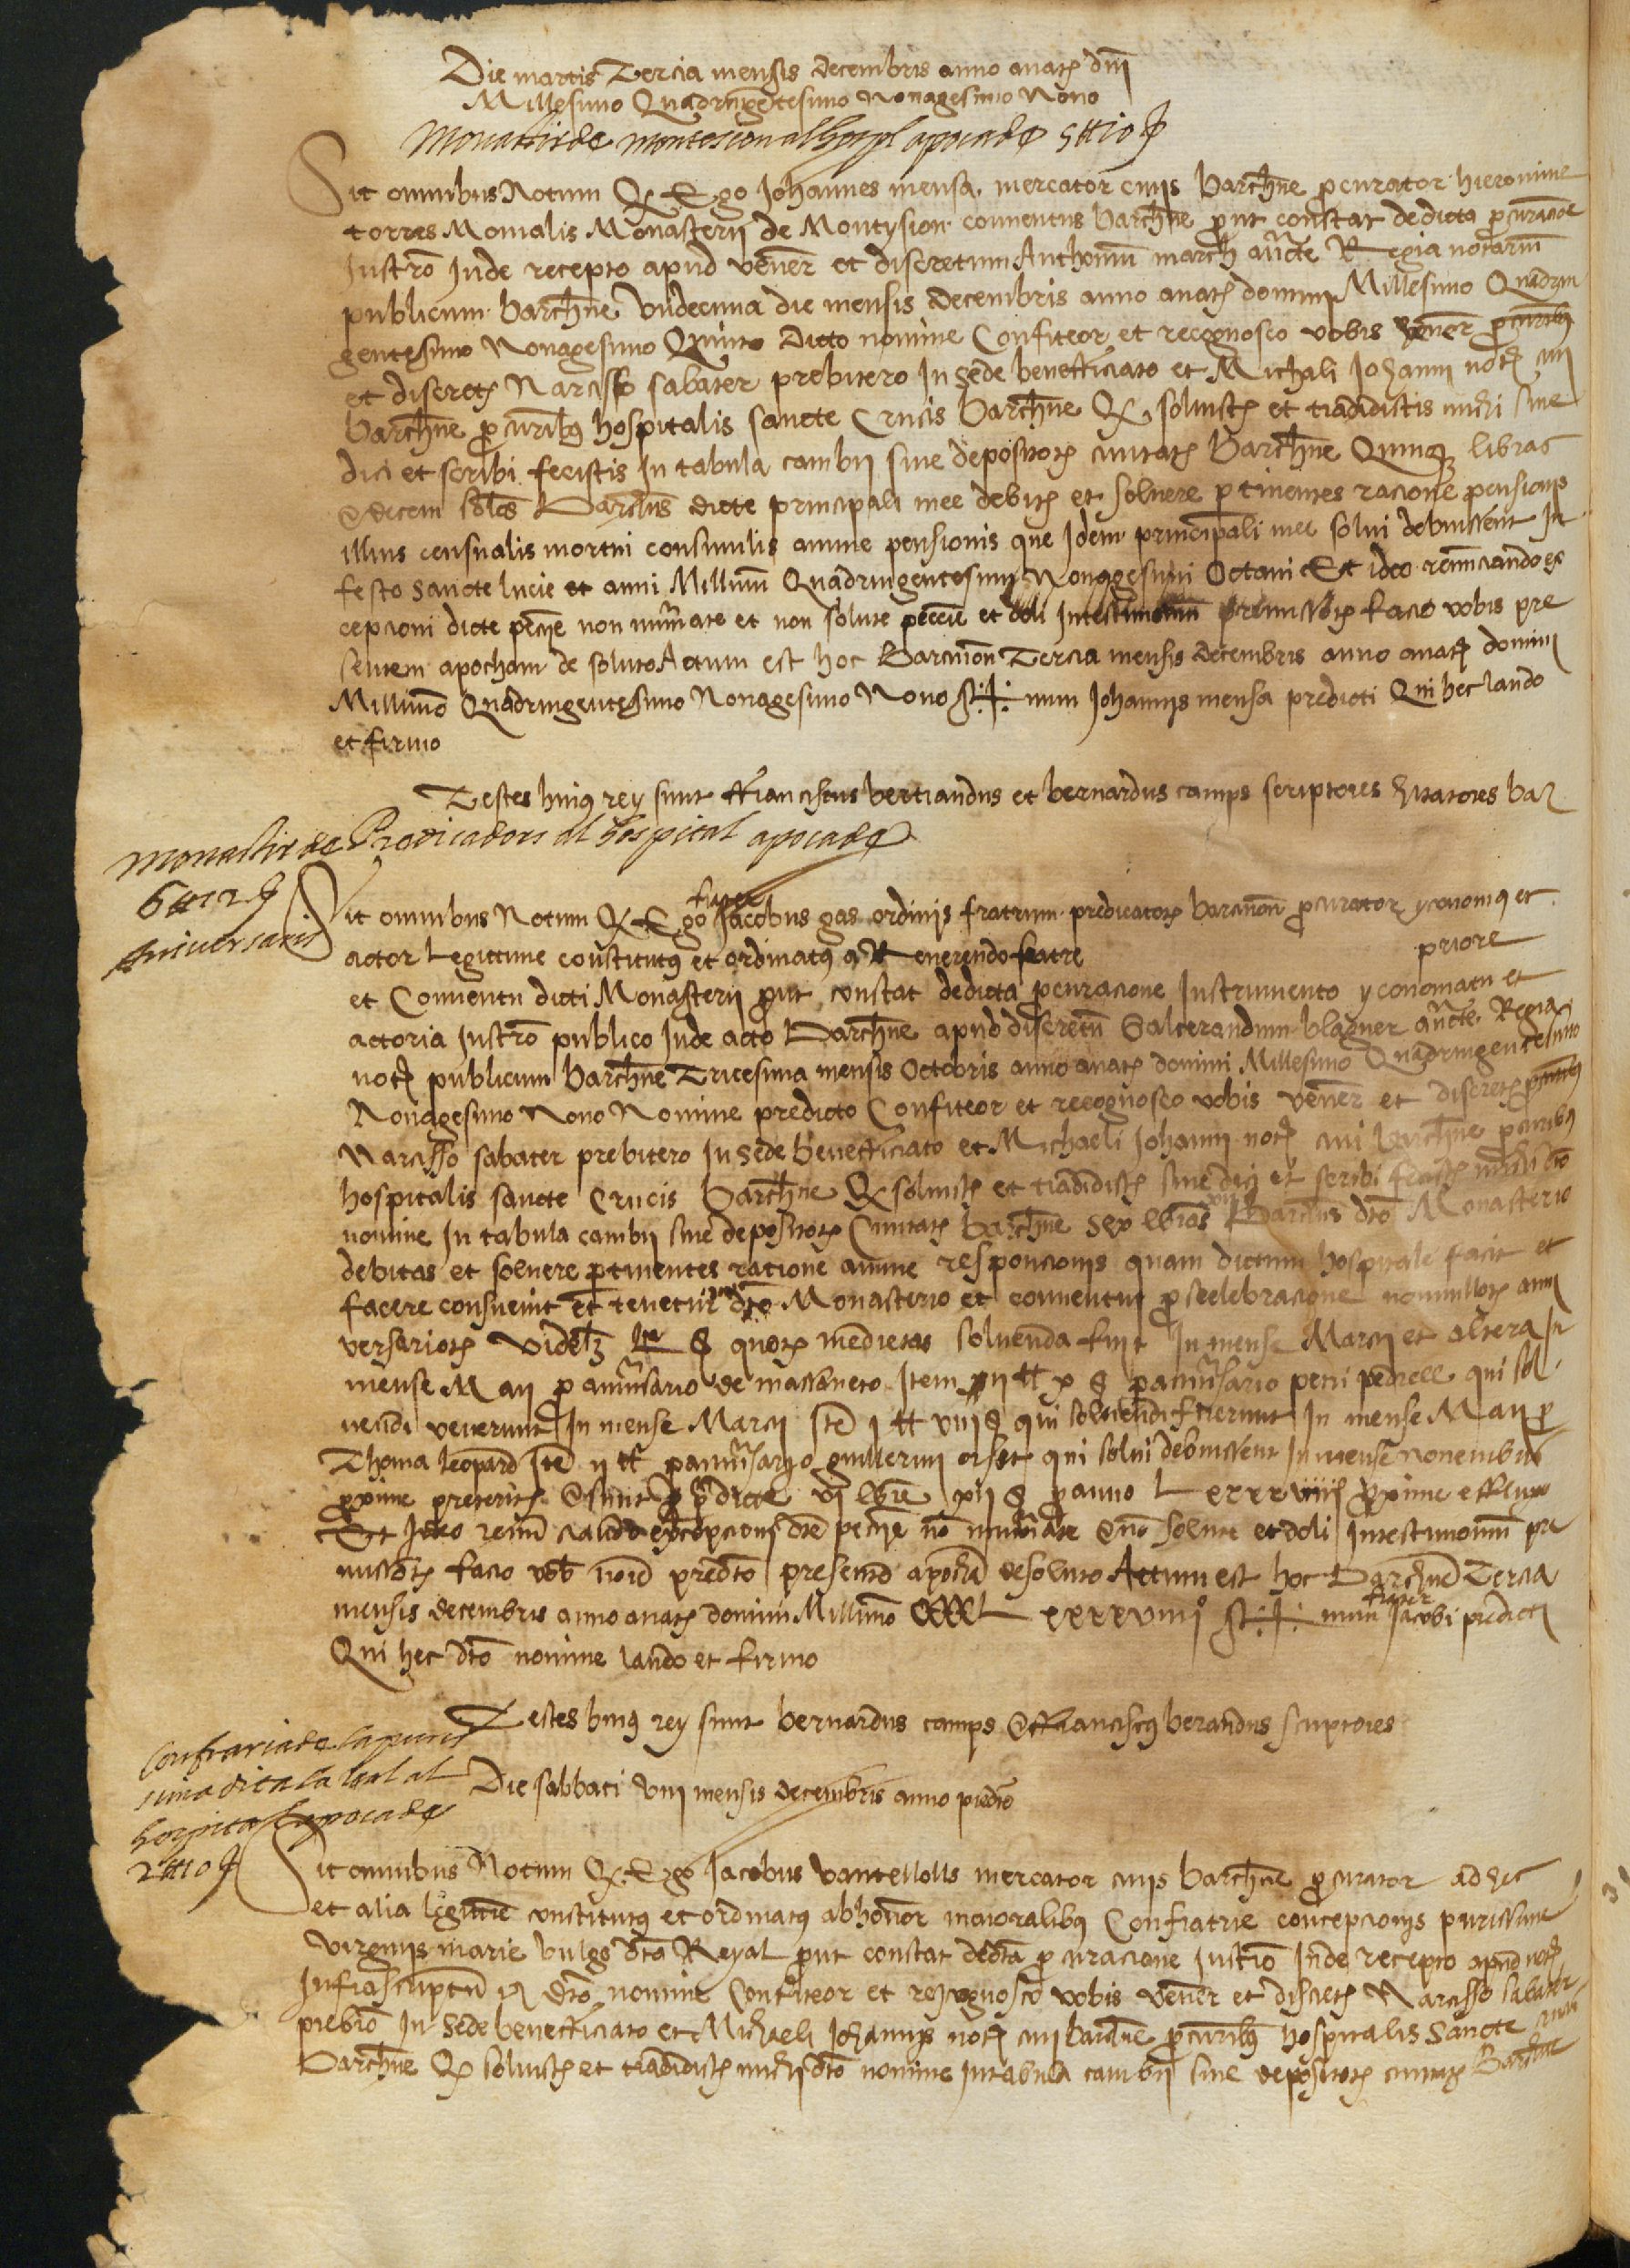 Die martis Tercia mensis decembris anno anatꝭ dñi
Millesimo Quadringẽtesimo Nonagesimo Nono
Monastir de montesion al hospl apocade 5 ℔ 10 ß
Sit omnibus Notum Qꝫ Ego Johannes mensa, mercator ciuis barchñe ꝓcurator hieronime
torres Monialis Monasterij de Montysion conuentus barchñe ꝓut constat de dicta ꝓcuracioẽ
Instrõ Inde recepto apud veñer et discretum Anthoniũ march auc̃te Regia notariũ
publicum barchñe Vndecima die mensis decembris anno anatꝭ domini Millesimo Quadrin
gentesimo Nonagesimo Quinto Dicto nomine Confiteor et recognosco vobis veñer
et discretꝭ Narcisso sabater prebitero In sede benefficiato et Michali Johanni notꝭ ciui
barchñe ꝓcuribꝰ hospitalis sancte Crucis barchñe Qꝫ soluistꝭ et tradidistis michi siue
dici et scribi fecistis In tabula cambij siue depositorꝭ ciuitatꝭ Barchñe Quinqꝫ libras
& decem soĩos Barchñs dicte principali mee debitꝭ et soluere ꝑtinentes racione pensionis
illius censualis mortui consimilis annue pensionis que Idem principali mee solui debuissent In
festo sancte lucie et anni Millimi Quadringentesimi Nonagesimi Octaui Et ideo renũciando ex
cepcioni dicte pecc̃ie non nũmate et non solute peccũie et doli In testimoniũ premissorꝭ facio vobis pre
sentem apocham de soluto Actum est hoc Barcinoñ Tercia mensis decembris anno anatꝭ domini
Millimo Quadringentesimo Nonagesimo Nono Sig✠num Johannis mensa predicti Qui hec laudo
et firmo
Testes huiꝰ rey sunt ffranciscus bertrandus et bernardus camps scriptores hitatores bar
Monastir de Predicadors al hospital apocade
6 ℔ 12 ß
Aniuersaris
frater
Sit omnibus Notum Qꝫ Ego Jacobus gas ordinis fratrum predicatorꝭ barcinoñ ꝓcurator yconomꝰ et
actor Legittime constitutꝰ et ordinatꝰ a Reuerendo fratre priore
et Conuentu dicti Monasterij ꝓut constat de dicta ꝓcuracione Instrumento yconomatu et
actoria Instrõ publico Inde acto Barchñe apud discretũ Galcerandum blaguer auc̃te Regia
notꝭ publicum barchñe Tricesima mensis Octobris anno anatꝭ domini Millesimo Quadringentesimo
Nonagesimo Nono Nomine predicto Confiteor et recognosco vobis veñer et discretꝭ
Narcisso sabater prebitero In sede benefficiato et Michaeli Johanni notꝭ ciui barchñe ꝓcuribꝰ
hospitalis sancte Crucis barchñe Qꝫ soluistꝭ et tradidistꝭ siue dici et scribi fecistꝭ michi dc̃o
nomine In tabula cambij siue depositorꝭ Ciuitatꝭ barchñe sex libras xij Barchñs dc̃o Monasterio
debitas et soluere ꝑtinentes ratione annue responcionis quam dictum hospitale facit et
facere consueuit et tenetur dc̃o Monasterio et conuentui ꝓ seelebracione nonnullorꝭ anni
versariorꝭ Videlꝫ ß quorꝭ medietas soluenda fuit In mense Marcij et altera In
mense Maij ꝓ anniũsario de massaneto Item ij ℔ x ß ꝓ anniũsario petri pedrell qui sol
uendi venerunt In mense Marcij Itẽ j ℔ viij ß qui soluendi fuerunt In mense Maij ꝓ
Thoma leopard Itẽ ij ℔ ꝓ anniũsario guillermi orset qui solui debuissent In mense nonembris
ꝓxime preteritꝭ & sunt ꝓ p̃dicte vj libre xij ß ꝓ anno L xxxxviiij ꝓxime effluxo
Et Ideo renũciando excepcioni dc̃e pec̃ie nõ nũmate & nõ solute et doli In testimoniũ pre
missorꝭ facio vob̃ noĩe predc̃to presentẽ apocã de soluto Actum est hoc Barchñe Tercia
mensis decembris anno anatꝭ domini Millimo CCCCL xxxxviiijº Sig✠num frater Jacobi predicti
Qui hec dc̃o nomine laudo et firmo
Testes huiꝰ rey sunt bernardus camps & ffranciscꝰ berandus scriptores
Confraria de la puris
sima dita la real al
hospital apocade
2 ℔ 10 ß
Die sabbati Viij mensis decembris anno predc̃o
Sit omnibus Notum Qꝫ Ego Jacobus vantellolls mercator ciuis barchñe ꝓcurator ad hec
et alia legittime constitutꝰ et ordinatꝰ ab honor maioralibꝰ Confratrie concepcionis purissime
virginis marie vulgo dc̃ta Reyal ꝓut constat de dc̃ta ꝓcuracione Instrõ Inde recepto apud notꝭ
Infrascriptũ dc̃o nomine Confiteor et recognosco vobis veñer et discretꝭ Narcisso sabater
prebrõ In sede benefficiato et Michaeli Johannis notꝭ ciui barchñe ꝓcuribꝰ hospitalis Sancte
Barchñe Qꝫ soluistꝭ et tradidistꝭ michi dc̃o nomine In tabula cambij siue depositorꝭ ciuitatꝭ Barchñe